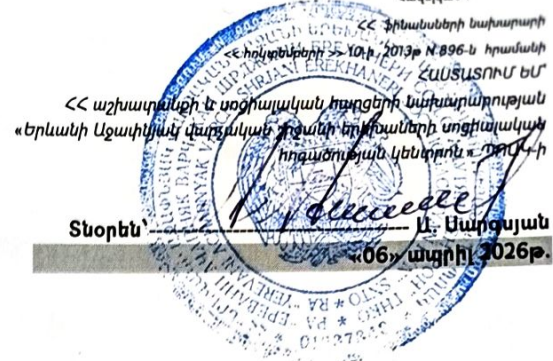 ՀՀ ֆինանսների նախարարի
«հոկտեմբերի» 10-ի 2013թ N 896-Ն հրամանի
ՀԱՍՏԱՏՈՒՄ ԵՄ՝
ՀՀ աշխատանքի և սոցիալական հարցերի նախարարության
«Երևանի Աջափնյակ վարչական շրջանի երեխաների սոցիալական
հոգածության կենտրոն» ՊՈԱԿ-ի
Տնօրեն՝ Ա. Սարգսյան
«06» ապրիլ 2026թ.